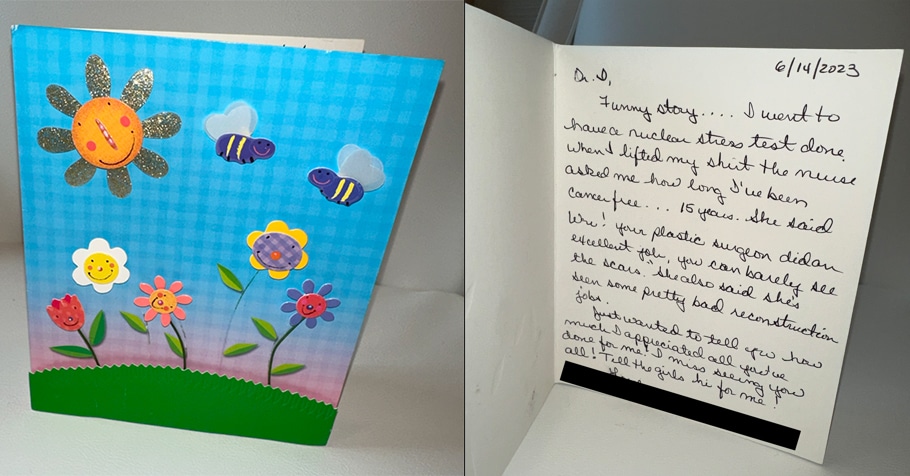 6/14/2023
Dr. D,
Funny story.... I went to
have a nuclear stress test done.
When I lifted my shirt the nurse
asked me how long I've been
cancer free... 15 years. She said
your plastic surgeon did an
excellent job, you can barely see
the scars." She also said she's
seen some pretty bad reconstruction
jobs.
Just wanted to tell you how
much I appreciated all you've
done for me! I miss seeing you
all! Tell the girls hi for me!